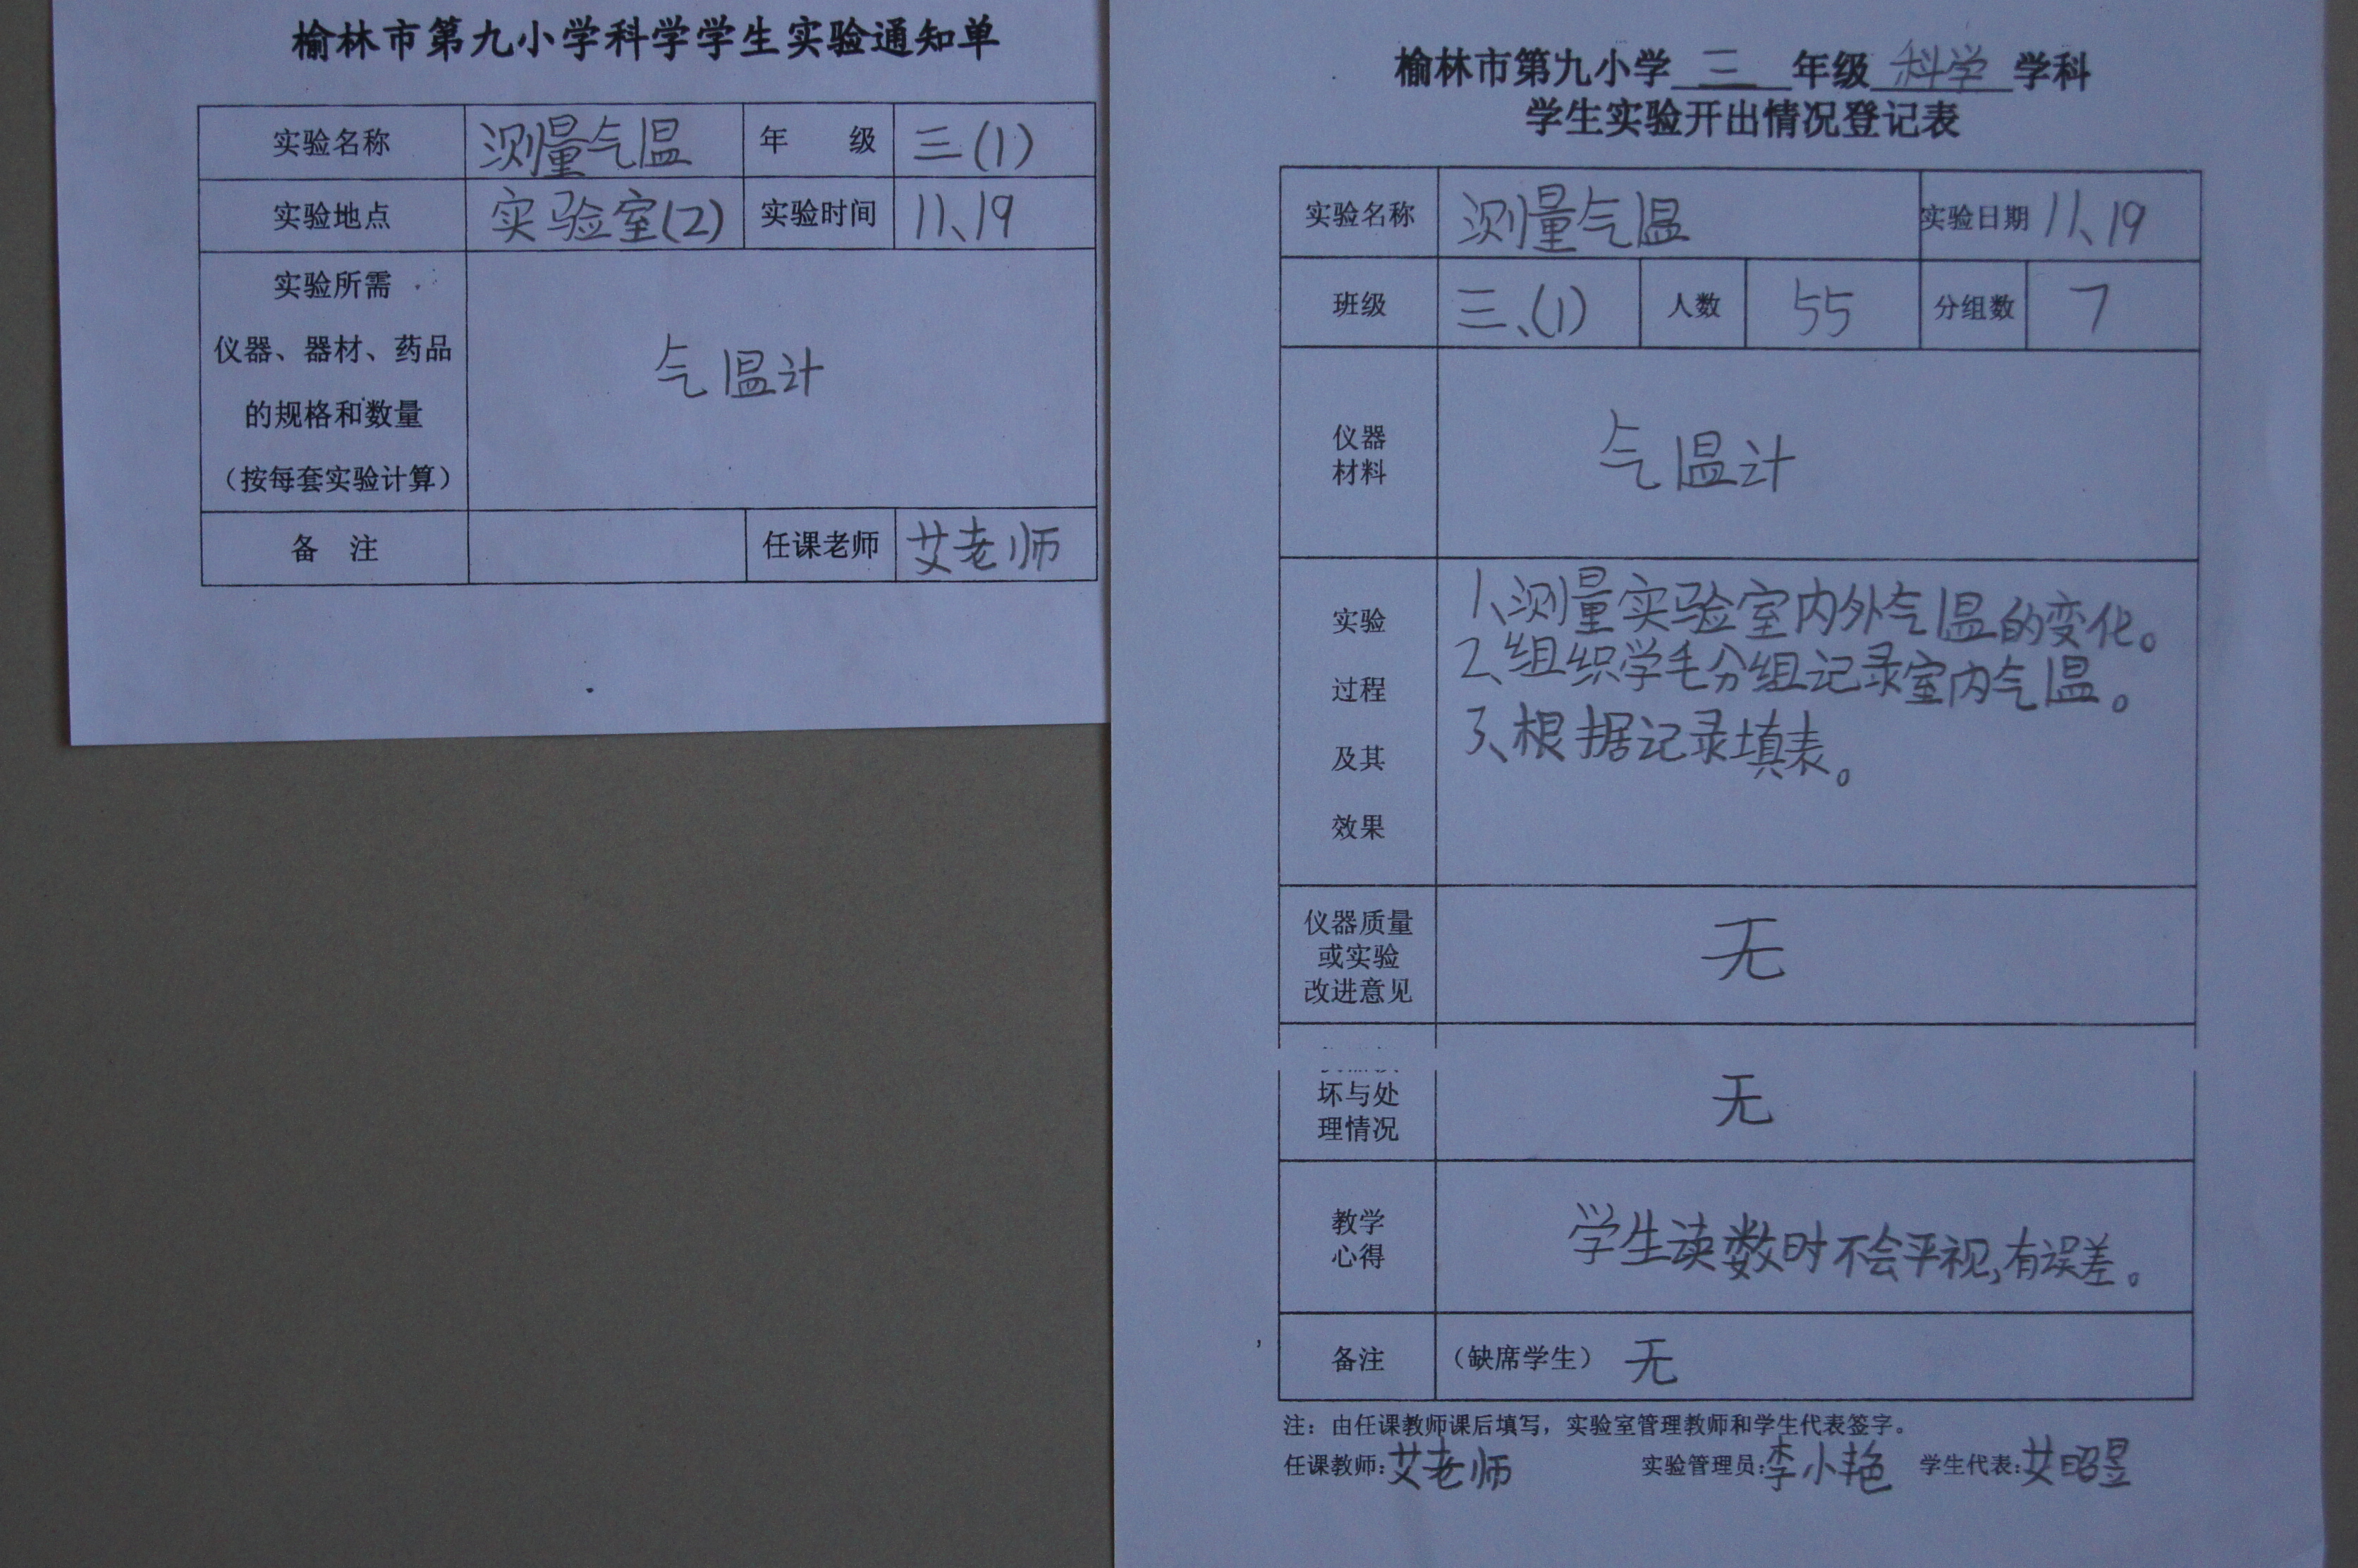 榆林市第九小学科学学生实验通知单
实验名称 测量气温 年 级 三(1)
实验地点 实验室(2) 实验时间 11、19
实验所需
仪器、器材、药品
的规格和数量
（按每套实验计算）
气温计
备 注 任课老师 艾老师
榆林市第九小学 三 年级 科学 学科
学生实验开出情况登记表
实验名称 测量气温 实验日期 11、19
班级 三、(1) 人数 55 分组数 7
仪器
材料
气温计
实验
过程
及其
效果
1、测量实验室内外气温的变化。
2、组织学毛分组记录室内气温。
3、根据记录填表。
仪器质量
或实验
改进意见
无
坏与处
理情况
无
教学
心得
学生读数时不会平视,有误差。
备注 （缺席学生） 无
注：由任课教师课后填写，实验室管理教师和学生代表签字。
任课教师:艾老师 实验管理员:李小艳 学生代表:艾昭昱